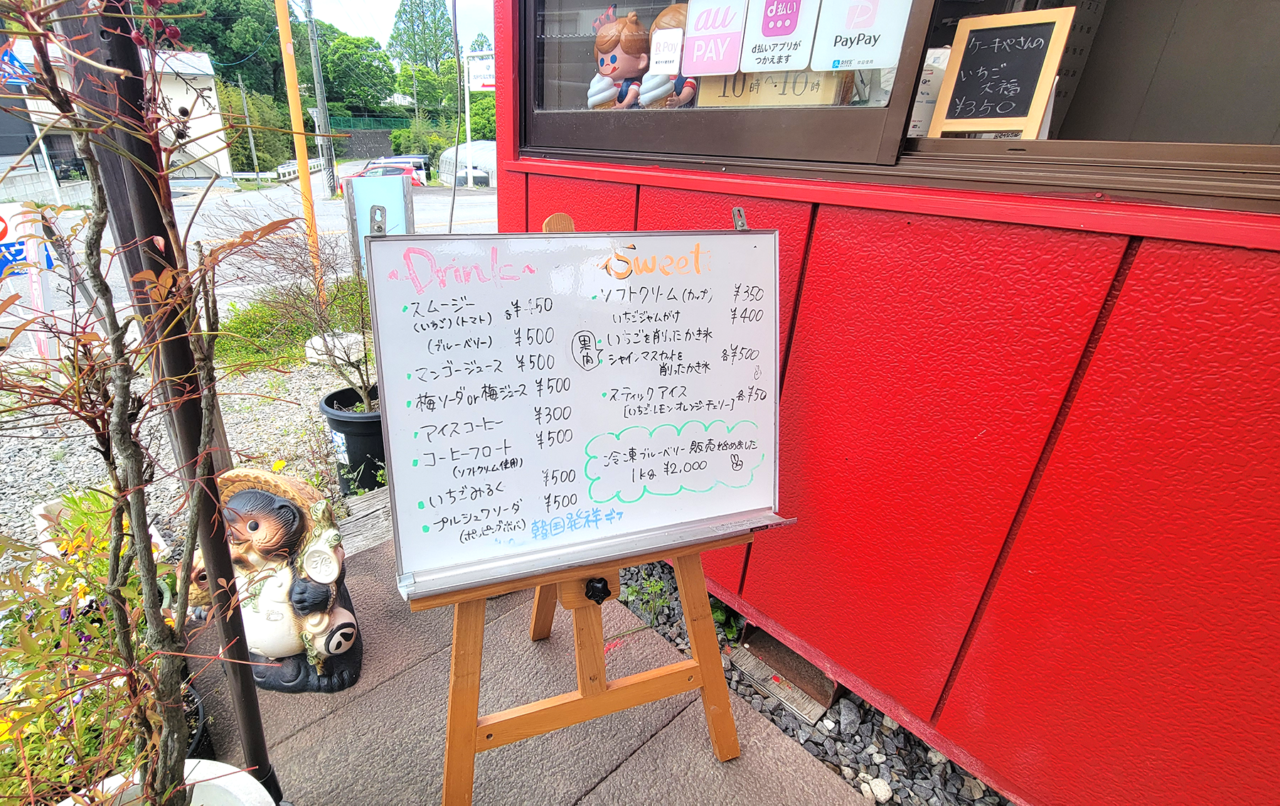 R Pay
au
PAY
d払い
d払いアプリが
つかえます
PayPay
10時〜10時
ケーキやさんの
いちご
大福
¥350
Drink
スムージー
(いちご)(トマト)
(ブルーベリー) ¥500
マンゴージュース ¥500
梅ソーダor梅ジュース ¥500
アイスコーヒー ¥300
コーヒーフロート ¥500
(ソフトクリーム使用)
いちごみるく ¥500
プルシュワソーダ ¥500
(ポッピングボバ) 韓国発祥
Sweet
ソフトクリーム(カップ) ¥350
いちごジャムがけ ¥400
いちごを削ったかき氷
シャインマスカットを
削ったかき氷 各¥500
スティックアイス 各¥50
[いちご・レモン・オレンジ・チェリー]
冷凍ブルーベリー販売始めました
1kg ¥2,000